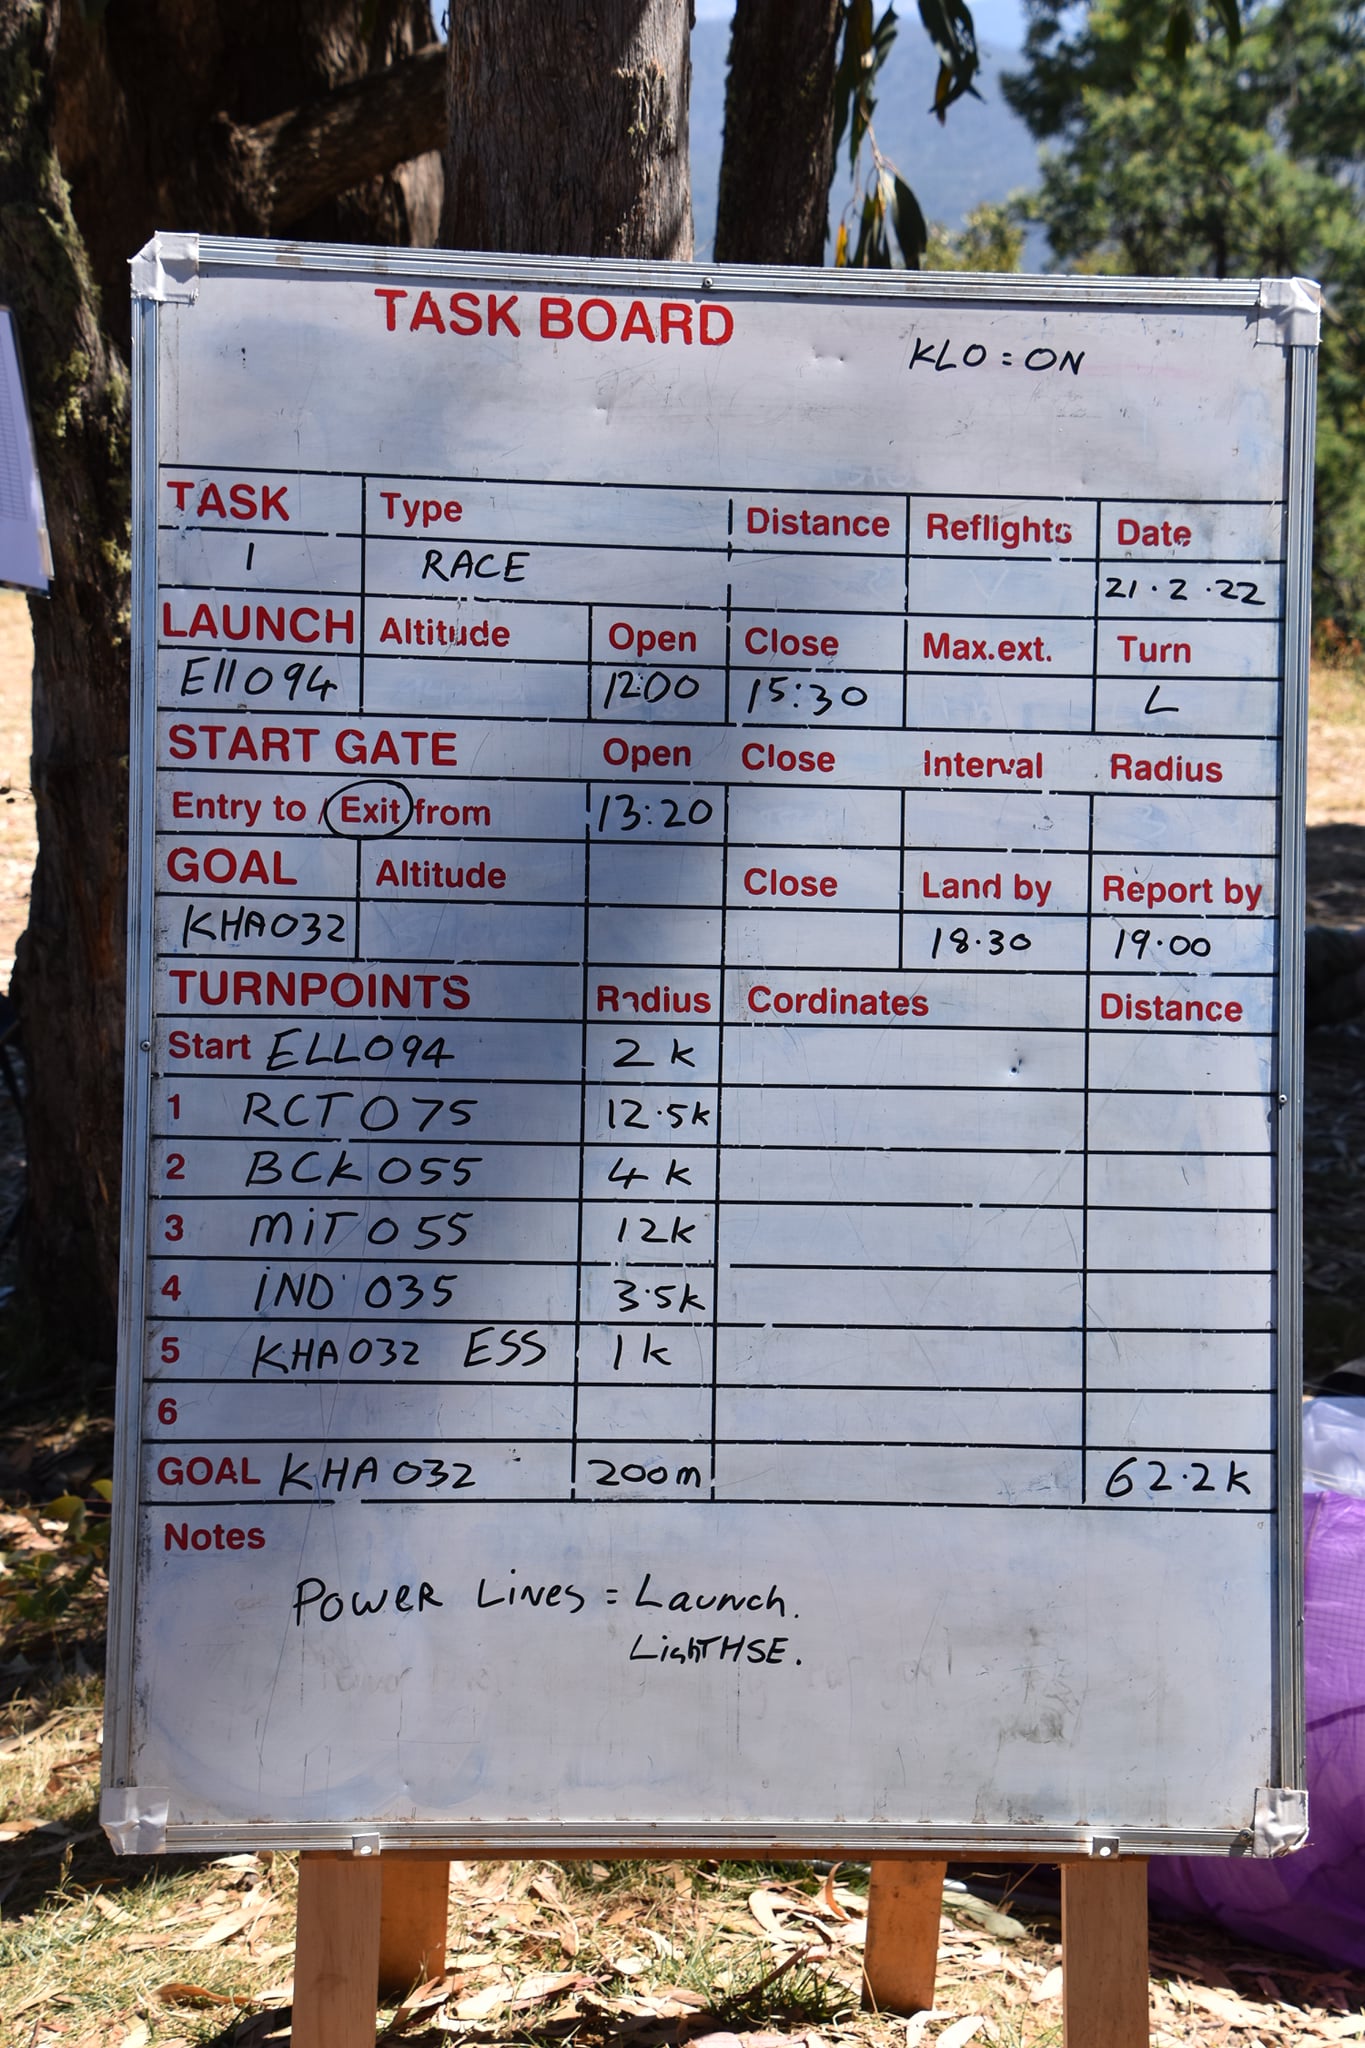 TASK BOARD
KLO = ON
TASK Type Distance Reflights Date
1 RACE 21.2.22
LAUNCH Altitude Open Close Max.ext. Turn
Ell094 1200 15:30 L
START GATE Open Close Interval Radius
Entry to / Exit from 13:20
GOAL Altitude Close Land by Report by
KHA032 18.30 19.00
TURNPOINTS Radius Cordinates Distance
Start ELL094 2k
1 RCT075 12.5k
2 BCK055 4k
3 MiT055 12k
4 iND 035 3.5k
5 KHA032 ESS 1k
6
GOAL KHA032 200m 62.2k
Notes
POWER LiNES = Launch.
LighTHSE.